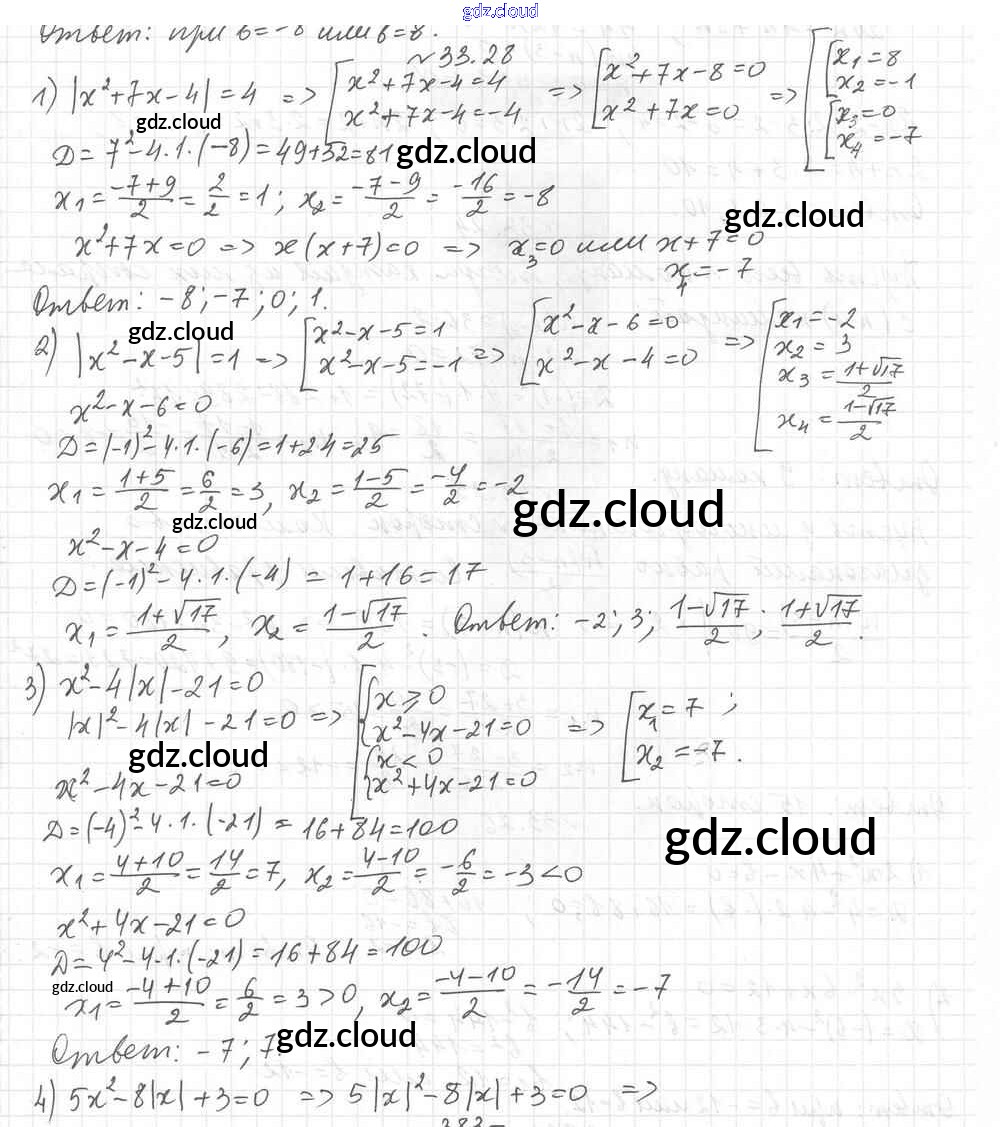 gdz.cloud
Ответ: при b=-8 или b=8.
№33.28
1) |x²+7x-4|=4 => [x²+7x-4=4 x²+7x-4=-4 => [x²+7x-8=0 x²+7x=0 => [[x₁=8 x₂=-1 [x₃=0 x₄=-7
gdz.cloud
D=7²-4·1·(-8)=49+32=81
gdz.cloud
x₁=(-7+9)/2=2/2=1; x₂=(-7-9)/2=-16/2=-8
gdz.cloud
x²+7x=0 => x(x+7)=0 => x₃=0 или x+7=0
x₄=-7
Ответ: -8;-7;0;1.
gdz.cloud
2) |x²-x-5|=1 => [x²-x-5=1 x²-x-5=-1 => [x²-x-6=0 x²-x-4=0 => [x₁=-2 x₂=3 x₃=(1+√17)/2 x₄=(1-√17)/2
x²-x-6=0
D=(-1)²-4·1·(-6)=1+24=25
x₁=(1+5)/2=6/2=3, x₂=(1-5)/2=-4/2=-2
gdz.cloud
gdz.cloud
x²-x-4=0
D=(-1)²-4·1·(-4)=1+16=17
x₁=(1+√17)/2, x₂=(1-√17)/2. Ответ: -2; 3; (1-√17)/2; (1+√17)/2.
3) x²-4|x|-21=0
|x|²-4|x|-21=0 => [{x⩾0 x²-4x-21=0 {x<0 x²+4x-21=0 => [x₁=7; x₂=-7.
gdz.cloud
x²-4x-21=0
D=(-4)²-4·1·(-21)=16+84=100
gdz.cloud
x₁=(4+10)/2=14/2=7, x₂=(4-10)/2=-6/2=-3<0
x²+4x-21=0
D=4²-4·1·(-21)=16+84=100
gdz.cloud
x₁=(-4+10)/2=6/2=3>0, x₂=(-4-10)/2=-14/2=-7
gdz.cloud
Ответ: -7; 7.
4) 5x²-8|x|+3=0 => 5|x|²-8|x|+3=0 =>